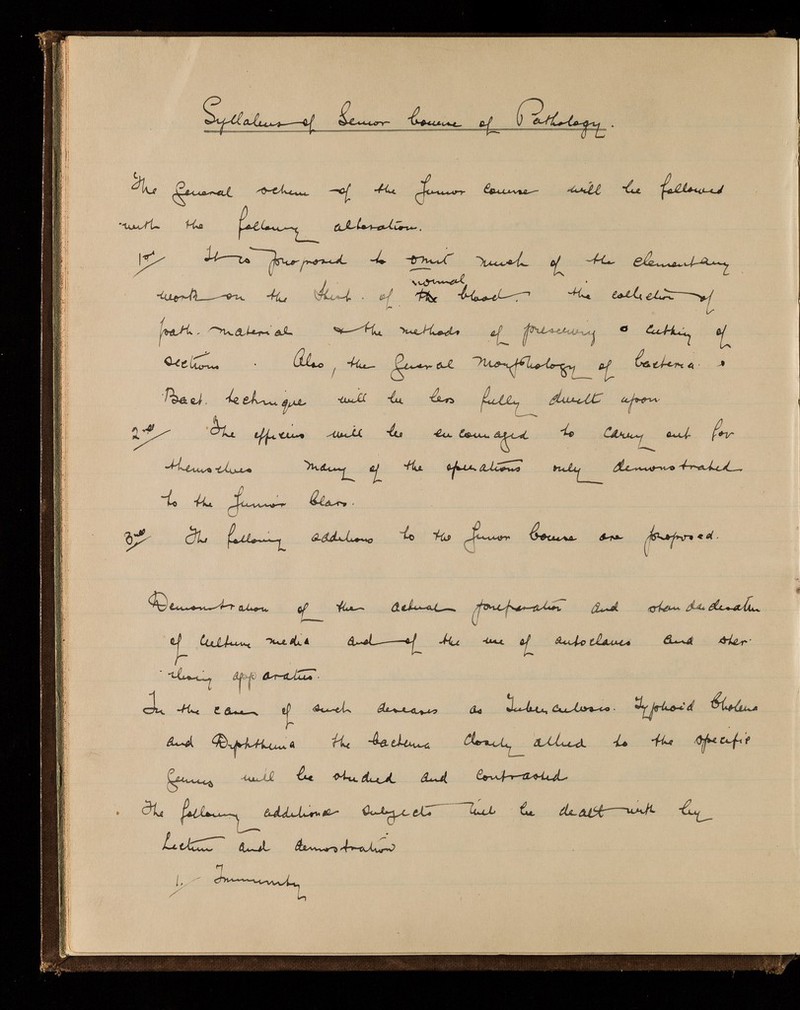 Syllabus of Senior Course of Pathology.
The general scheme of the Junior Course will be followed
with the following alteration.
1st/ It is proposed to omit much of the elementary
normal
work on the of the blood. the collection of
path. material & the methods of preserving & cutting of
sections. Also, the general Morphology of bacteria &
Bact. technique will be less fully dwelt upon
2nd/ The officers will be encouraged to Carry out for
themselves many of the operations only demonstrated
to the Junior Class.
3rd/ The following additions to the Junior Course are proposed.
Demonstration of the actual preparation and standardization
of Culture media and of the use of autoclaves and ster-
ilising apparatus.
In the case of such diseases as Tuberculosis. Typhoid Cholera
and Diphtheria the bacteria closely allied to the specific
germs will be studied and Contrasted
The following additional subjects will be dealt with by
Lecture and demostration
1./ Immunity